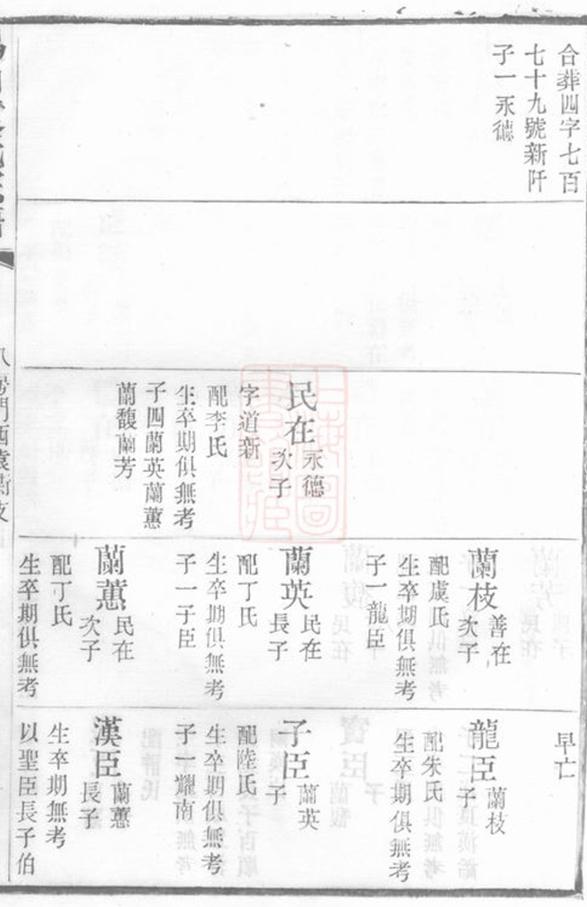 合葬四字七百
七十九號新阡
子一永德
民在
永德
次子
字道新
配李氏
生卒期俱無考
子四蘭英蘭蕙
蘭馥蘭芳
蘭枝
善在
次子
配虞氏
生卒期俱無考
子一龍臣
蘭英
民在
長子
配丁氏
生卒期俱無考
子一子臣
蘭蕙
民在
次子
配丁氏
生卒期俱無考
早亡
龍臣
蘭枝
子
配朱氏
生卒期俱無考
子臣
蘭英
子
配陸氏
生卒期俱無考
子一耀南
漢臣
蘭蕙
長子
生卒期無考
以聖臣長子伯